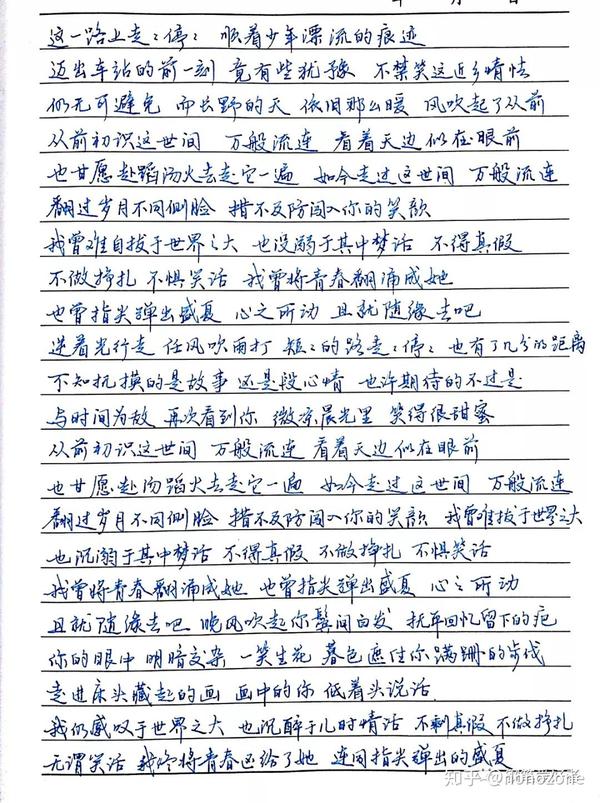 这一路上走走停停 顺着少年漂流的痕迹
迈出车站的前一刻 竟有些犹豫 不禁笑这近乡情怯
仍无可避免 而长野的天 依旧那么暖 风吹起了从前
从前初识这世间 万般流连 看着天边似在眼前
也甘愿赴蹈汤火去走它一遍 如今走过这世间 万般流连
翻过岁月不同侧脸 措不及防闯入你的笑颜
我曾难自拔于世界之大 也沉溺于其中梦话 不得真假
不做挣扎 不惧笑话 我曾将青春翻涌成她
也曾指尖弹出盛夏 心之所动 且就随缘去吧
逆着光行走 任风吹雨打 短短的路走走停停 也有了几分的距离
不知抚摸的是故事 还是段心情 也许期待的不过是
与时间为敌 再次看到你 微凉晨光里 笑得很甜蜜
从前初识这世间 万般流连 看着天边似在眼前
也甘愿赴汤蹈火去走它一遍 如今走过这世间 万般流连
翻过岁月不同侧脸 措不及防闯入你的笑颜 我曾难拔于世界之大
也沉溺于其中梦话 不得真假 不做挣扎 不惧笑话
我曾将青春翻涌成她 也曾指尖弹出盛夏 心之所动
且就随缘去吧 晚风吹起你鬓间白发 抚平回忆留下的疤
你的眼中 明暗交杂 一笑生花 暮色遮住你蹒跚的步伐
走进床头藏起的画 画中的你 低着头说话
我仍感叹于世界之大 也沉醉于儿时情话 不剩真假 不做挣扎
无谓笑话 我终将青春还给了她 连同指尖弹出的盛夏
知乎 @nonozone